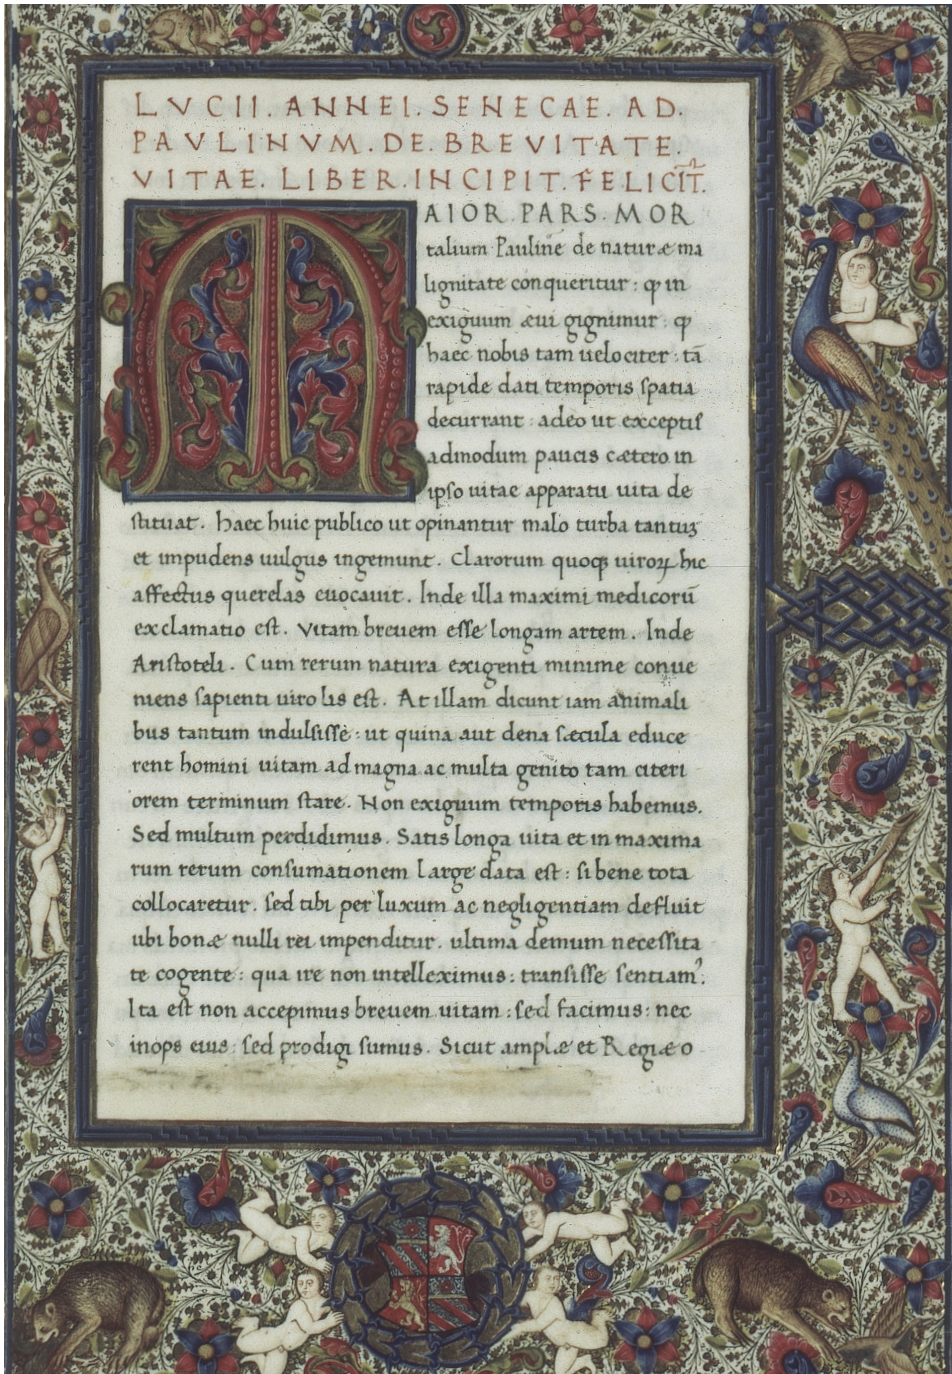 LVCII. ANNEI. SENECAE. AD.
PAVLINVM. DE. BREVITATE.
VITAE. LIBER. INCIPIT. FELICIT̅.
MAIOR. PARS. MOR
talium Pauline de naturæ ma
lignitate conqueritur: ꝙ in
exiguum æui gignimur: ꝙ
haec nobis tam uelociter: tā
rapide dati temporis spatia
decurrant: adeo ut exceptis
admodum paucis cætero in
ipso uitae apparatu uita de
stituat. haec huic publico ut opinantur malo turba tantuꝫ
et impudens uulgus ingemunt. Clarorum quoqꝫ uiroꝝ hic
affectus querelas euocauit. Inde illa maximi medicorū
exclamatio est. Vitam breuem esse longam artem. Inde
Aristoteli. Cum rerum natura exigenti minime conue
niens sapienti uiro lis est. At illam dicunt iam animali
bus tantum indulsisse: ut quina aut dena sæcula educe
rent homini uitam ad magna ac multa genito tam citeri
orem terminum stare. Non exiguum temporis habemus.
Sed multum perdidimus. Satis longa uita et in maxima
rum rerum consumationem large data est: si bene tota
collocaretur. sed ubi per luxum ac negligentiam defluit
ubi bonæ nulli rei impenditur. ultima demum necessita
te cogente: qua ire non intelleximus: transisse sentiam᾽.
Ita est non accepimus breuem uitam: sed facimus: nec
inops eius: sed prodigi sumus. Sicut amplæ et Regiæ o